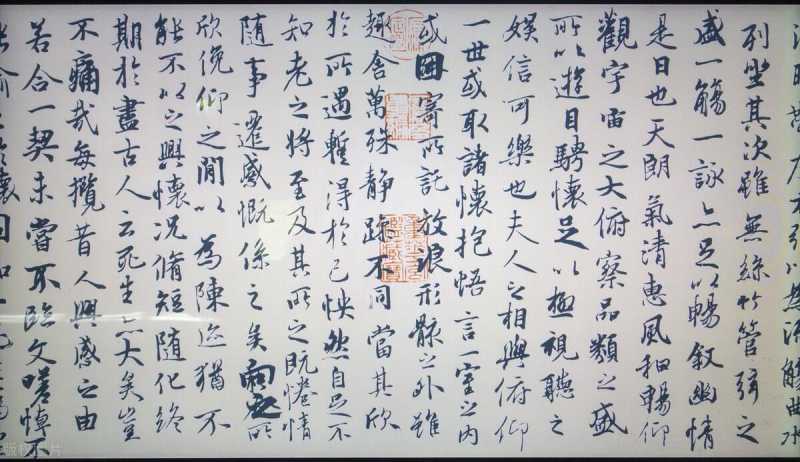 映帶左右引以為流觴曲水
列坐其次雖無絲竹管弦之
盛一觴一詠亦足以暢敘幽情
是日也天朗氣清惠風和暢仰
觀宇宙之大俯察品類之盛
所以遊目騁懷足以極視聽之
娛信可樂也夫人之相與俯仰
一世或取諸懷抱悟言一室之內
或因寄所託放浪形骸之外雖
趣舍萬殊靜躁不同當其欣
於所遇蹔得於己怏然自足不
知老之將至及其所之既惓情
隨事遷感慨係之矣向之所
欣俛仰之閒以為陳迹猶不
能不以之興懷況脩短隨化終
期於盡古人云死生亦大矣豈
不痛哉每攬昔人興感之由
若合一契未嘗不臨文嗟悼不
能喻之於懷固知一死生為